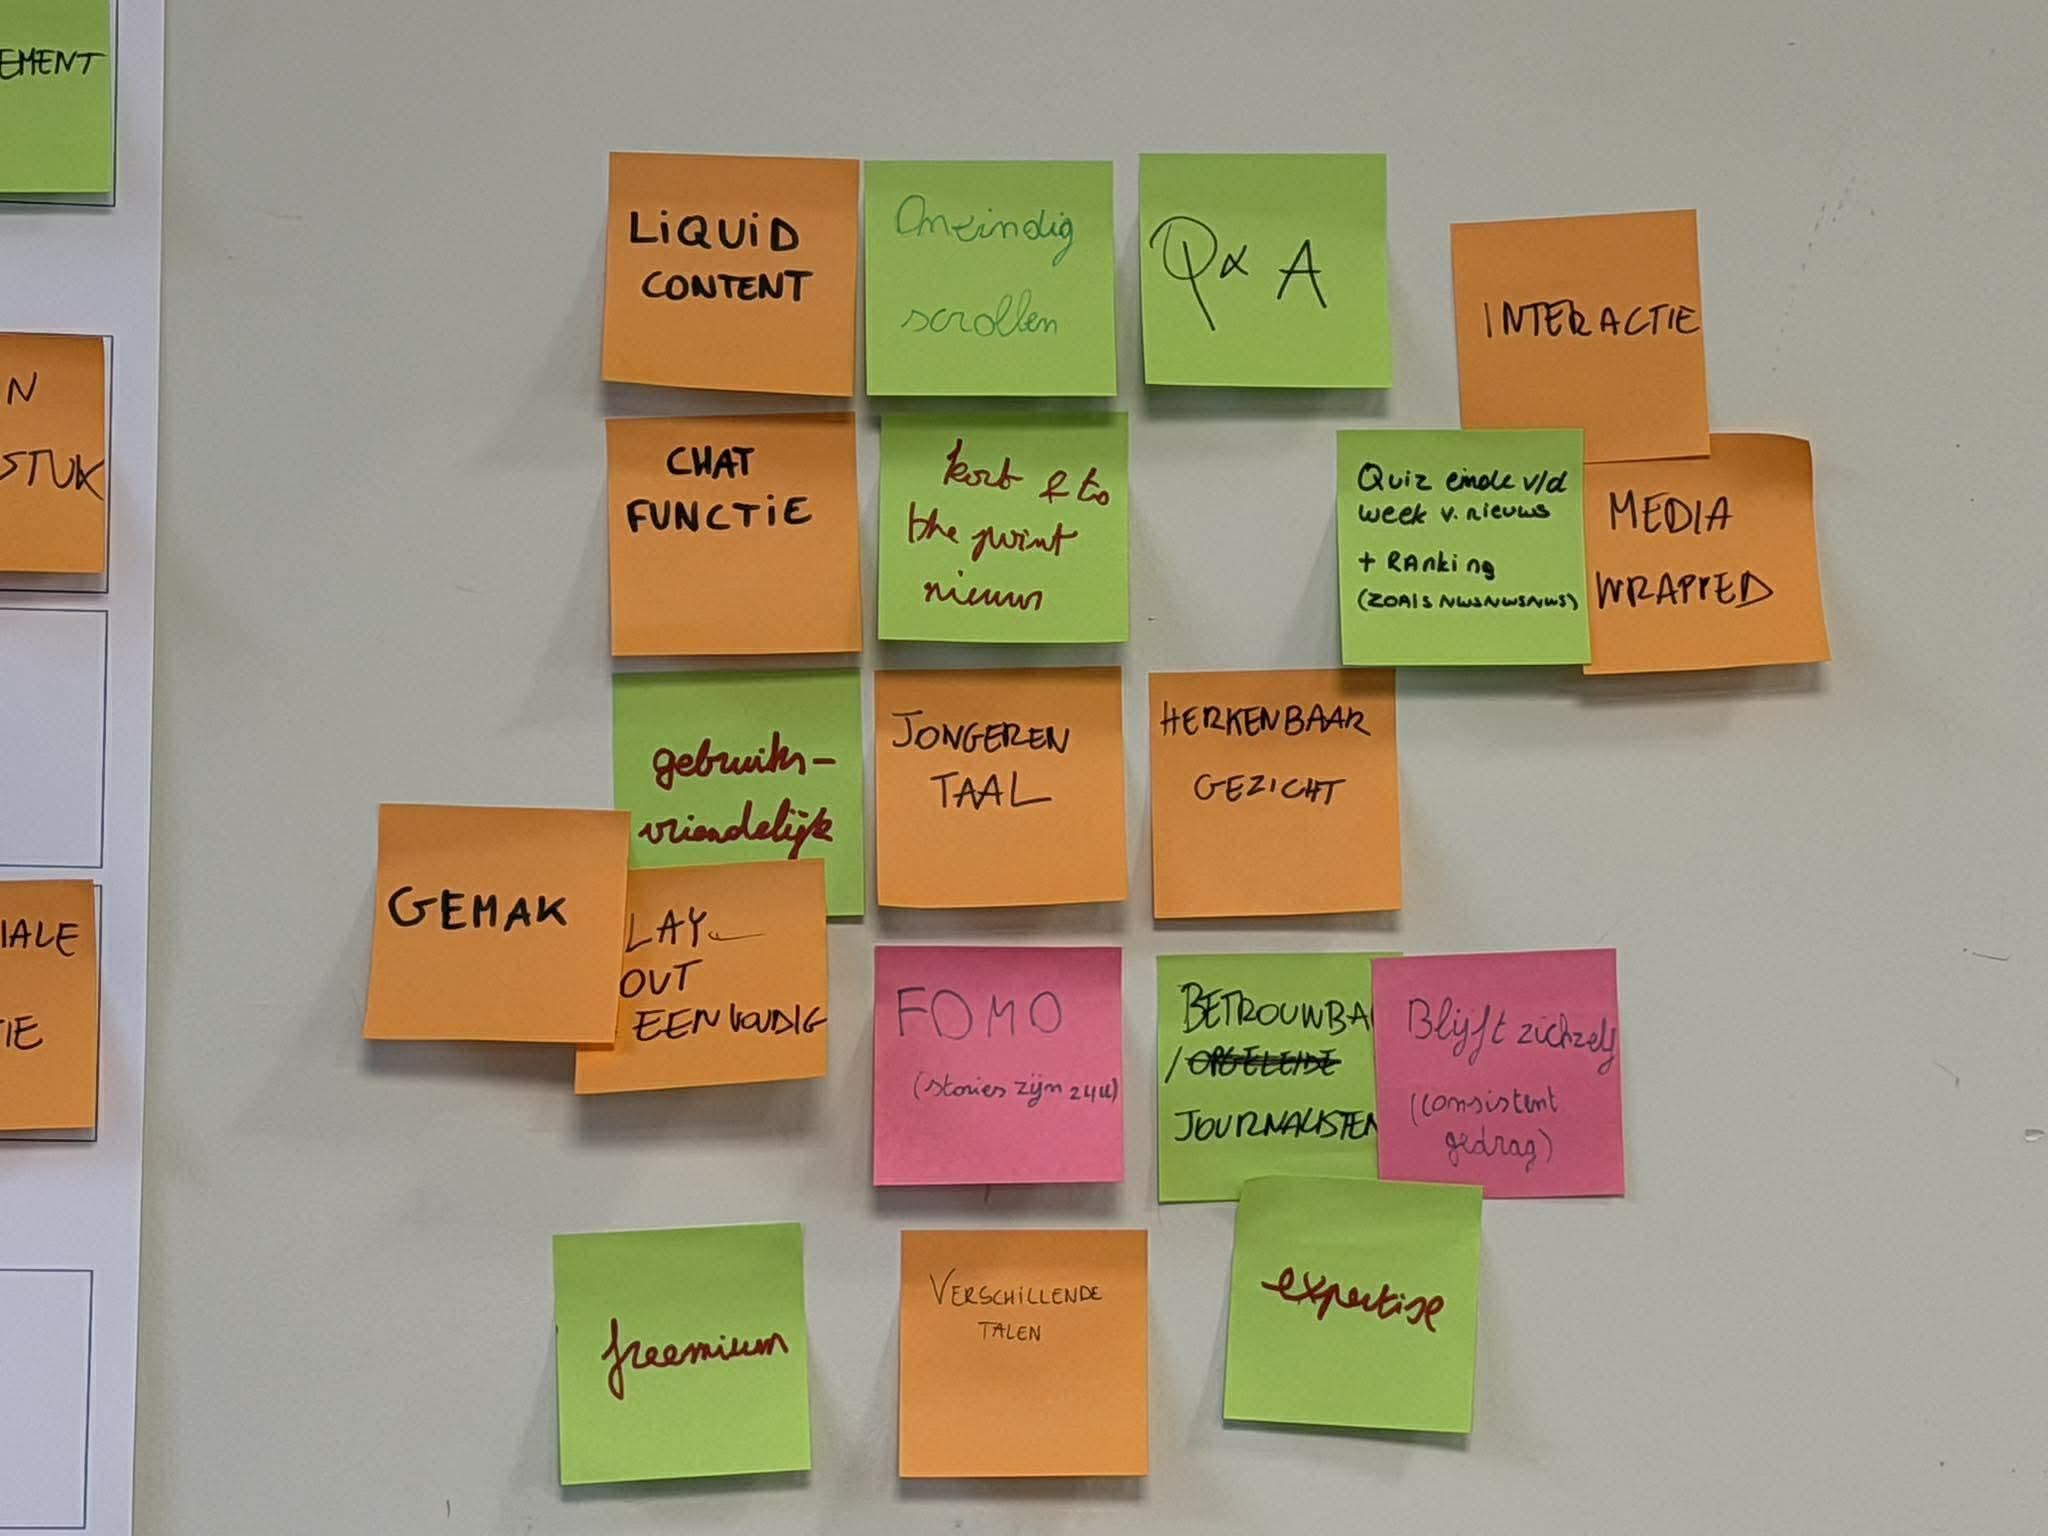 EMENT
N
STUK
IALE
TIE
LiQUiD
CONTENT
Oneindig
scrollen
Q & A
INTERACTIE
CHAT
FUNCTiE
kort & to
the point
nieuws
Quiz einde v/d
week v. nieuws
+ RAnking
(ZOAlS NWSNWSNWS)
MEDIA
WRAPPED
gebruiks-
vriendelijk
JONGEREN
TAAL
HERKENBAAR
GEZICHT
GEMAK
LAY-
OUT
EENVOUDIG
FOMO
(stories zijn 24u)
BETROUWBA
/ OPGELEIDE
JOURNALISTEN
Blijft zichzelf
(consistent
gedrag)
freemium
VERSCHILLENDE
TALEN
expertise